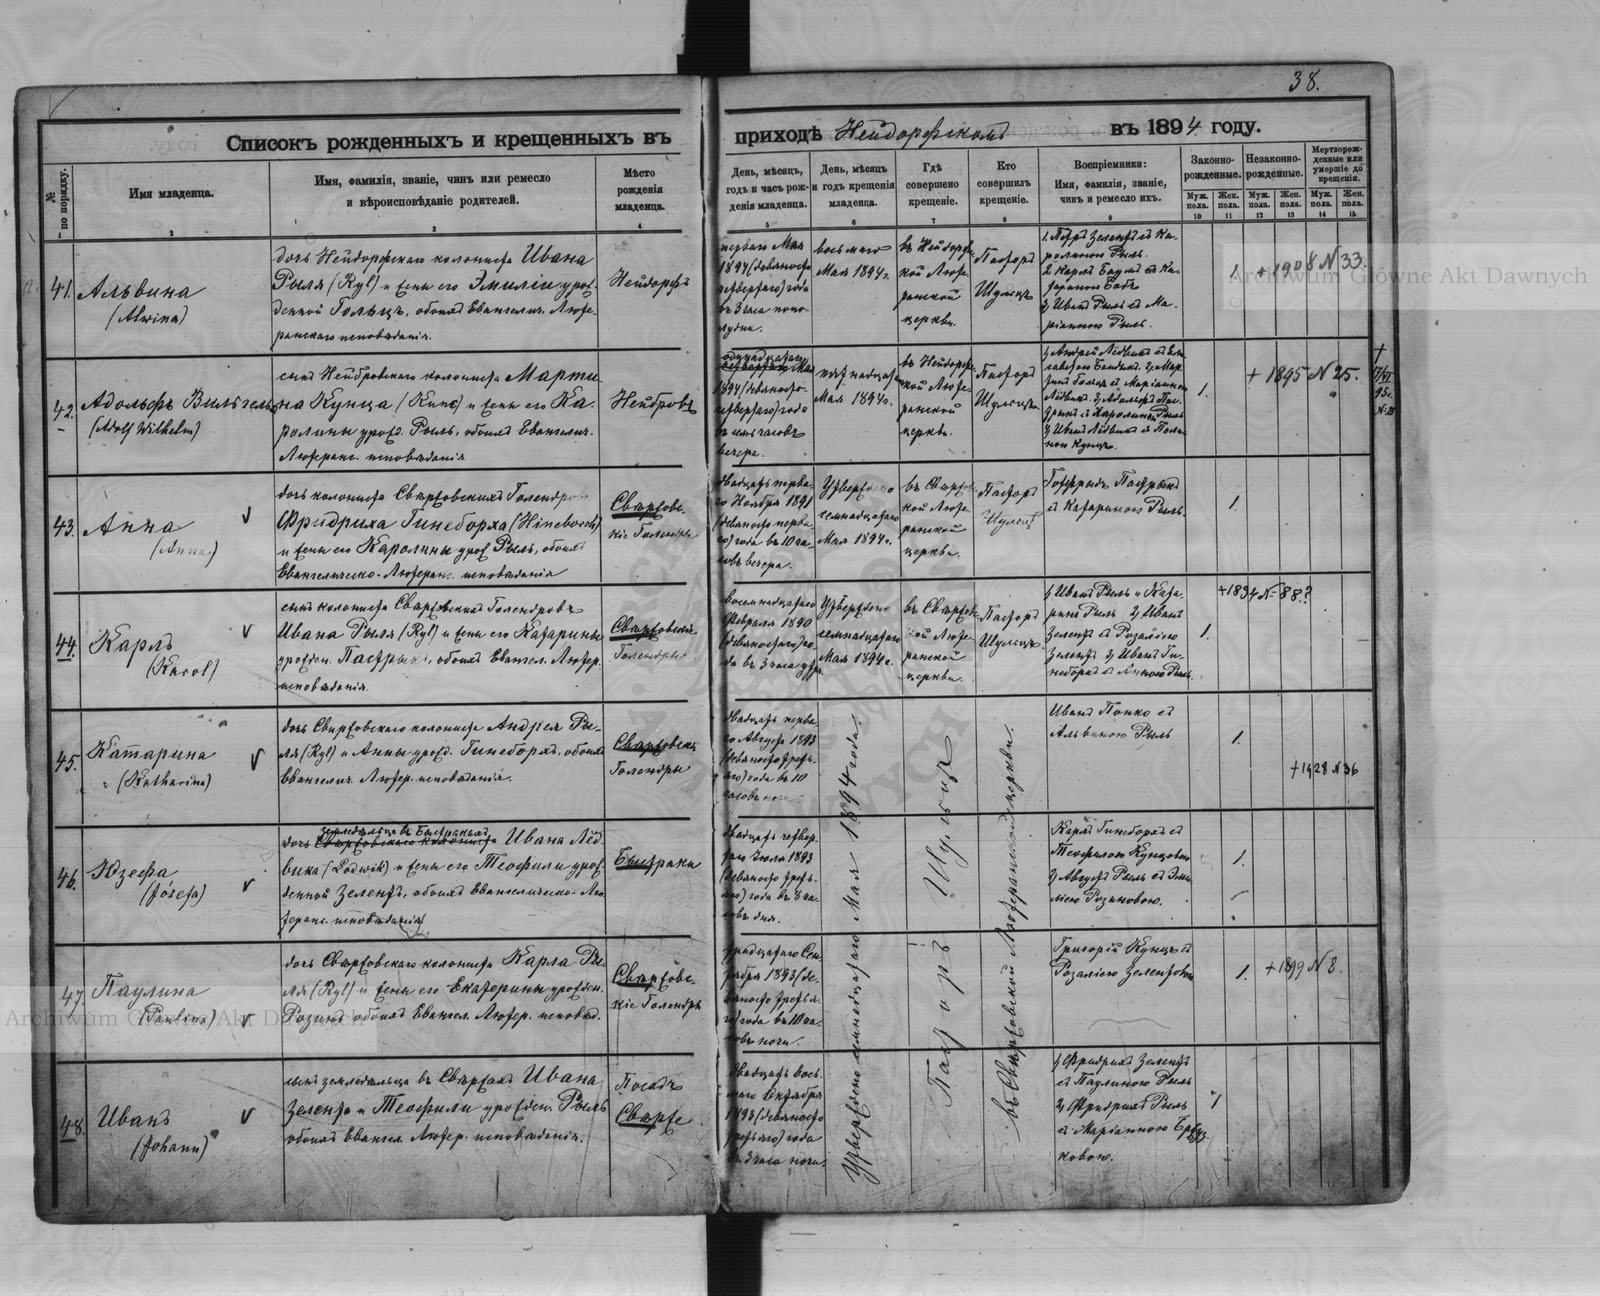 38.
Списокъ рожденныхъ и крещенныхъ въ приходѣ Нейдорфскомъ въ 1894 году.
№ по порядку.
Имя младенца.
Имя, фамилія, званіе, чинъ или ремесло
и вѣроисповѣданіе родителей.
Мѣсто
рожденія
младенца.
День, мѣсяцъ,
годъ и часъ рож-
денія младенца.
День, мѣсяцъ
и годъ крещенія
младенца.
Гдѣ
совершено
крещеніе.
Кто
совершилъ
крещеніе.
Воспріемники:
Имя, фамилія, званіе,
чинъ и ремесло ихъ.
Законно-
рожденные.
Незаконно-
рожденные.
Мертворож-
денные или
умершіе до
крещенія.
Муж. пола.
Жен. пола.
Муж. пола.
Жен. пола.
Муж. пола.
Жен. пола.
1 2 3 4 5 6 7 8 9 10 11 12 13 14 15
41.
Альвина
(Alwina)
дочь Нейдорфскаго колониста Ивана
Рыля (Ryl) и жены его Эмиліи урож-
денной Гольцъ, обоихъ Евангелич. Люте-
ранскаго исповѣданія.
Нейдорфъ
перваго Мая
1894 (девяносто
четвертаго) года
въ 3 часа попо-
лудни.
восьмаго
Мая 1894 г.
въ Нейдорф-
ской Люте-
ранской
церкви.
Пасторъ
Шульцъ
1. Петръ Зеленть съ Ка-
ролиною Рыль.
3) Иванъ Рыль съ Ма-
ріанною Рыль.
1.
+ 1908 N 33.
42.
Адольфъ Вильгельмъ
(Adolf Wilhelm)
сынъ Нейбровскаго колониста Марти-
на Кунца (Kunc) и жены его Ка-
ролины урожд. Рыль, обоихъ Евангелич.
Лютеранс. исповѣданія
Нейбровъ
1894 (девяносто
четвертаго) года
вечера.
пятнадцатаго
Мая 1894 г.
въ Нейдорф-
ской Люте-
ранской
церкви.
Пасторъ
Шульцъ
1.
+ 1895 N 25.
43.
Анна
(Anna)
дочь колониста Свержовскихъ Голендровъ
Фридриха Гинеборха (Hineborch)
и жены его Каролины урож. Рыль, обоихъ
Евангелическо-Лютеранс. исповѣданія
Свержовс-
кіе Голендры
двадцать перва-
го Ноября 1891
(девяносто перва-
го) года въ 10 ча-
совъ вечера.
Утверждено
семнадцатаго
Мая 1894 г.
въ Свержов-
ской Люте-
ранской
церкви.
Пасторъ
Шульцъ
Готфридъ Пастрыкъ
съ Катариною Рыль.
1.
44.
Карлъ
(Karol)
сынъ колониста Свержовскихъ Голендровъ
Ивана Рыля (Ryl) и жены его Катарины
урожден. Пастрыкъ, обоихъ Евангел. Лютер.
исповѣданія.
Свержовскіе
Голендры
восемнадцатаго
Февраля 1890
(девяностаго) го-
да въ 3 часа утра
Утверждено
семнадцатаго
Мая 1894 г.
въ Свержов-
ской Люте-
ранской
церкви.
Пасторъ
Шульцъ
1) Иванъ Рыль и Ката-
рина Рыль 2) Иванъ
Зеленть съ Розаліею
Зеленть 3) Иванъ Ги-
неборхъ съ Анною Рыль.
1.
+ 1894 N 88?
45.
Катарина
(Katharina)
дочь Свержовскаго колониста Андрея Ры-
ля (Ryl) и Анны урожд. Гинеборхъ, обоихъ
Евангелич. Лютер. исповѣданія.
Свержовскіе
Голендры
двадцать перва-
го Августа 1893
(девяносто треть-
яго) года въ 10
часовъ ночи
Иванъ Попко съ
Альвиною Рыль
1.
+ 1928 N 36
46.
Юзефа
(Józefa)
земледѣльца въ Быстракахъ
дочь Свержовскаго колониста Ивана Лёд-
вика (Lodwik) и жены его Теофили урож-
денной Зеленть, обоихъ Евангелическо-Лю-
теранс. исповѣданія
Быстраки
двадцать четвер-
таго Іюля 1893
(девяносто треть-
яго) года въ 8 ча-
совъ дня.
Карлъ Гинеборхъ съ
Теофилою Кунцовою
2) Августъ Рыль съ Эми-
ліею Розиковою.
1.
47.
Паулина
(Paulina)
дочь Свержовскаго колониста Карла Ры-
ля (Ryl) и жены его Екатерины урожден.
Розикъ обоихъ Евангел. Лютер. исповѣд.
Свержовс-
кіе Голендры
тридцатаго Сен-
тября 1893 (де-
вяносто третья-
го) года въ 10 ча-
совъ ночи.
Григорій Кунцъ съ
Розаліею Зелентовою
1.
+ 1899 N 8.
48.
Иванъ
(Johann)
сынъ земледѣльца въ Свержахъ Ивана
Зелента и Теофили урожден. Рыль
обоихъ Евангел. Лютер. исповѣданія.
Посадъ
Свержe
двадцать вось-
маго Октября
1893 (девяносто
третьяго) года
въ 3 часа ночи.
1) Фридрихъ Зеленть
съ Паулиною Рыль
2) Фридрихъ Рыль
съ Маріанною
1
Утверждено семнадцатаго Мая 1894 года.
Пасторъ Шульцъ
въ Свержовской Лютеранской церкви.
Archiwum Główne Akt Dawnych
Archiwum Główne Akt Dawnych